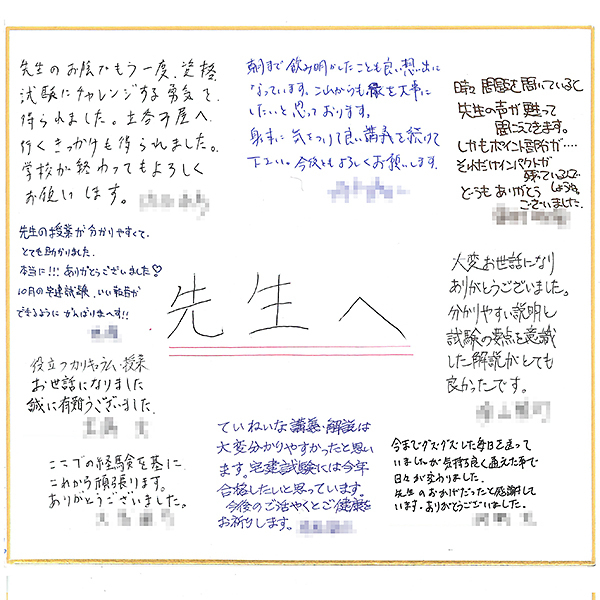 先生のお陰でもう一度、資格
試験にチャレンジする勇気を、
得られました。土谷す屋へ
行くきっかけも得られました。
学校が終わってもよろしく
お願いします。
朝まで飲み明かしたことも良い想い出に
なっています。これからも縁を大事に
したいと思っております。
身体に気をつけて良い講義を続けて
下さい。今後ともよろしくお願いします。
時々問題を解いていると
先生の声が甦って
聞こえてきます。
しかもポイント部分が‥‥
それだけインパクトが
残っているので
どうもありがとう
ございました。
先生の授業が分かりやすくて、
とても助かりました
本当に!!! ありがとうございました♡
10月の宅建試験、いい報告が
できるように がんばりまーす!!
先生へ
大変お世話になり
ありがとうございました。
分かりやすい説明と
試験の要点を意識
した解説がとても
良かったです。
役立つカリキュラム・授業
お世話になりました
誠に有難うございました.
ていねいな講義・解説は
大変分かりやすかったと思い
ます。宅建試験には今年
合格したいと思っています。
今後のご活やくとご健康を
お祈りします。
ここでの経験を基に
これから頑張ります。
ありがとうございました。
今までグズグズした毎日を送って
いましたが気持ち良く通えた事で
日々が変わりました.
先生のおかげだったと感謝して
います。ありがとうございました。